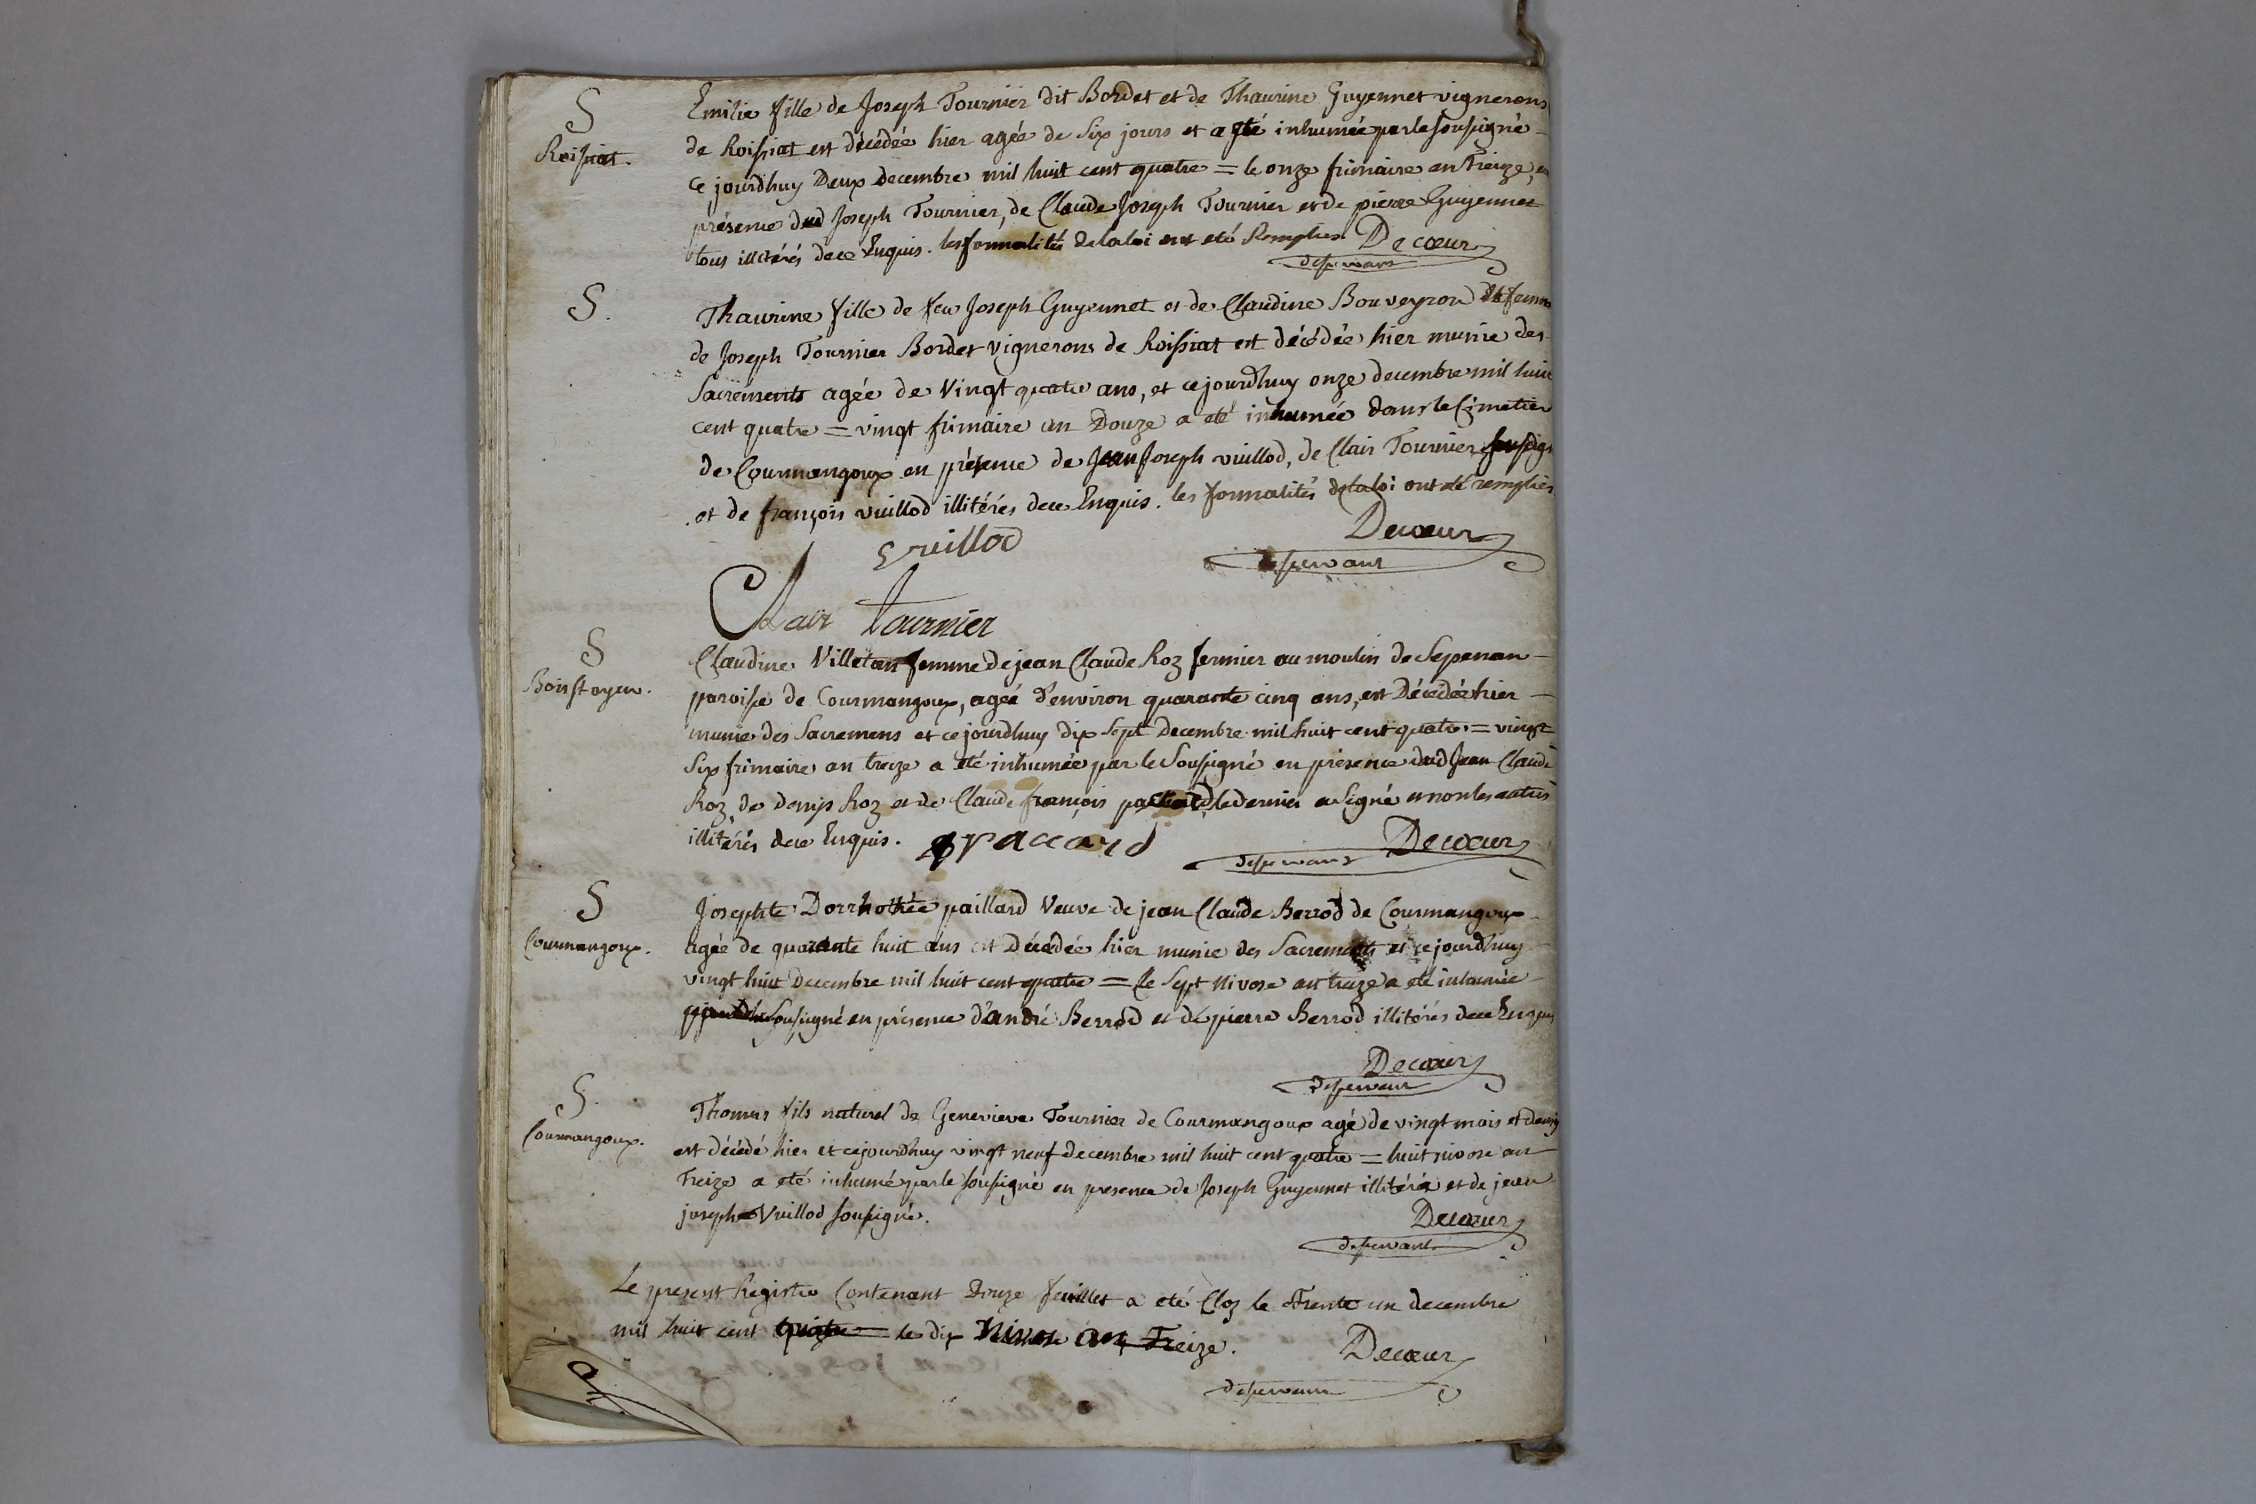 S
Roissiat.
Emilie fille de Joseph Tournier dit Bordet et de Thaurine Guyennet vignerons
de Roissiat est décédée hier agée de Six jours et a été inhumée par le soussigné
ce jourdhuy Deux decembre mil huit cent quatre = le onze frimaire an Treize, en
présence dud Joseph Tournier, de Claude Joseph Tournier et de pierre Guyennet
tous illitérés de ce Enquis. les formalités de la loi ont eté Remplies Decœur
desservant
S.
Thaurine fille de feu Joseph Guyennet et de Claudine Bouveyron femme
de Joseph Tournier Bordet vignerons de Roissiat est décédée hier munie des
Sacrements agée de Vingt quatre ans, et cejourdhuy onze decembre mil huit
cent quatre = vingt frimaire an Douze a eté inhumée dans le Cimetier
de Courmangoux en présence de Jean Joseph vuillod, de Clair Tournier soussign
et de françois vuillod illitérés de ce Enquis. les formalités de la loi ont eté remplies
Decœur
vuillod
desservant
Clair tournier
S
Claudine Villetan femme de jean Claude Roz fermier au moulin de Sepenan
paroisse de Courmangoux, agée d'environ quarante cinq ans, est Décédée hier
munie des Sacremens et cejourdhuy dix Sept Decembre mil huit cent quatre = vingt
Six frimaire an treize a eté inhumée par le Soussigné en présence dud Jean Claude
Roz, de denys Roz et de Claude françois paccard, le dernier a Signé et non les autres
illitérés de ce Enquis. paccard Decœur
desservant
S
Courmangoux.
Josephte Dorrhothée paillard Veuve de jean Claude Berrod de Courmangoux
agée de quarante huit ans est Décedée hier munie des Sacrements et cejourdhuy
vingt huit Decembre mil huit cent quatre = le Sept Nivose an treize a eté inhumée
Soussigné en présence d'andré Berrod et de pierre Berrod illitérés de ce Enquis
Decœur
desservant
S.
Courmangoux.
Thomas fils naturel de Genevieve Tournier de Courmangoux agé de vingt mois et demy
est décédé hier et cejourdhuy vingt neuf decembre mil huit cent quatre = huit nivose an
Treize a eté inhumé par le soussigné en presence de Joseph Guyennet illitéré et de jean
joseph Vuillod soussigné.
Decœur
desservant
Le present Registre Contenant Douze feuillet a eté Cloz le Trente un decembre
mil huit cent quatre = le dix Nivose an Treize.
Decœur
desservant